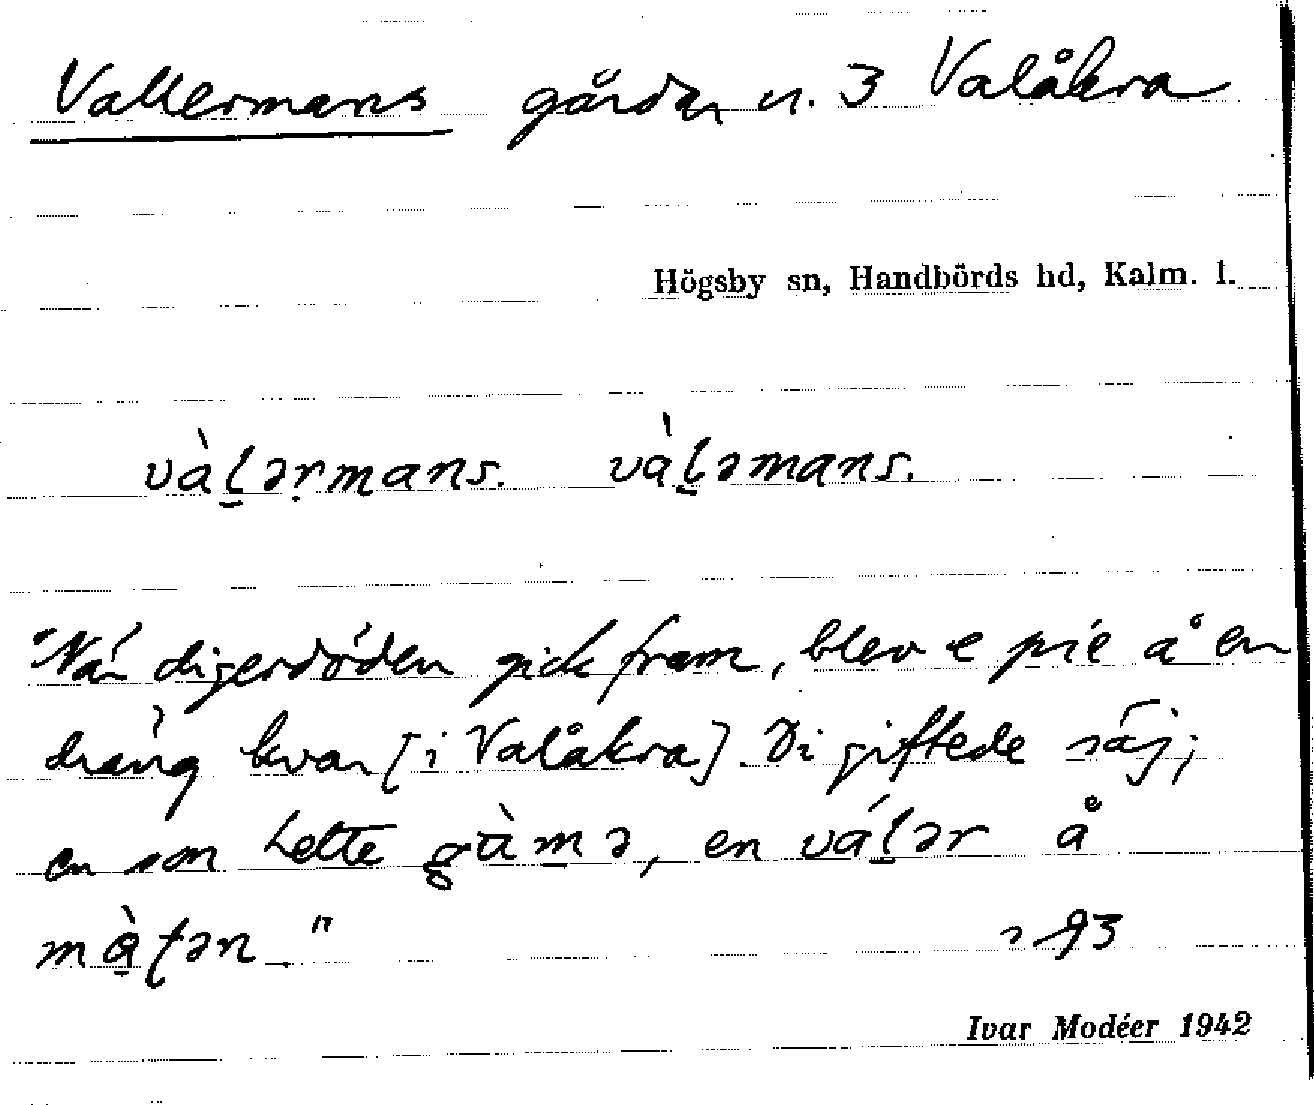 Vallermans gården n. 3 Valåkra
Högsby sn, Handbörds hd, Kalm. l.
vàḻərmans. vàḻəmans.
"När digerdöden gick fram, blev e pie å en
dräng kvar [i Valåkra]. Di giftede säj;
en son hette gàm̱ə, en váḻər å
mà̱tən_"
s 93
Ivar Modéer 1942